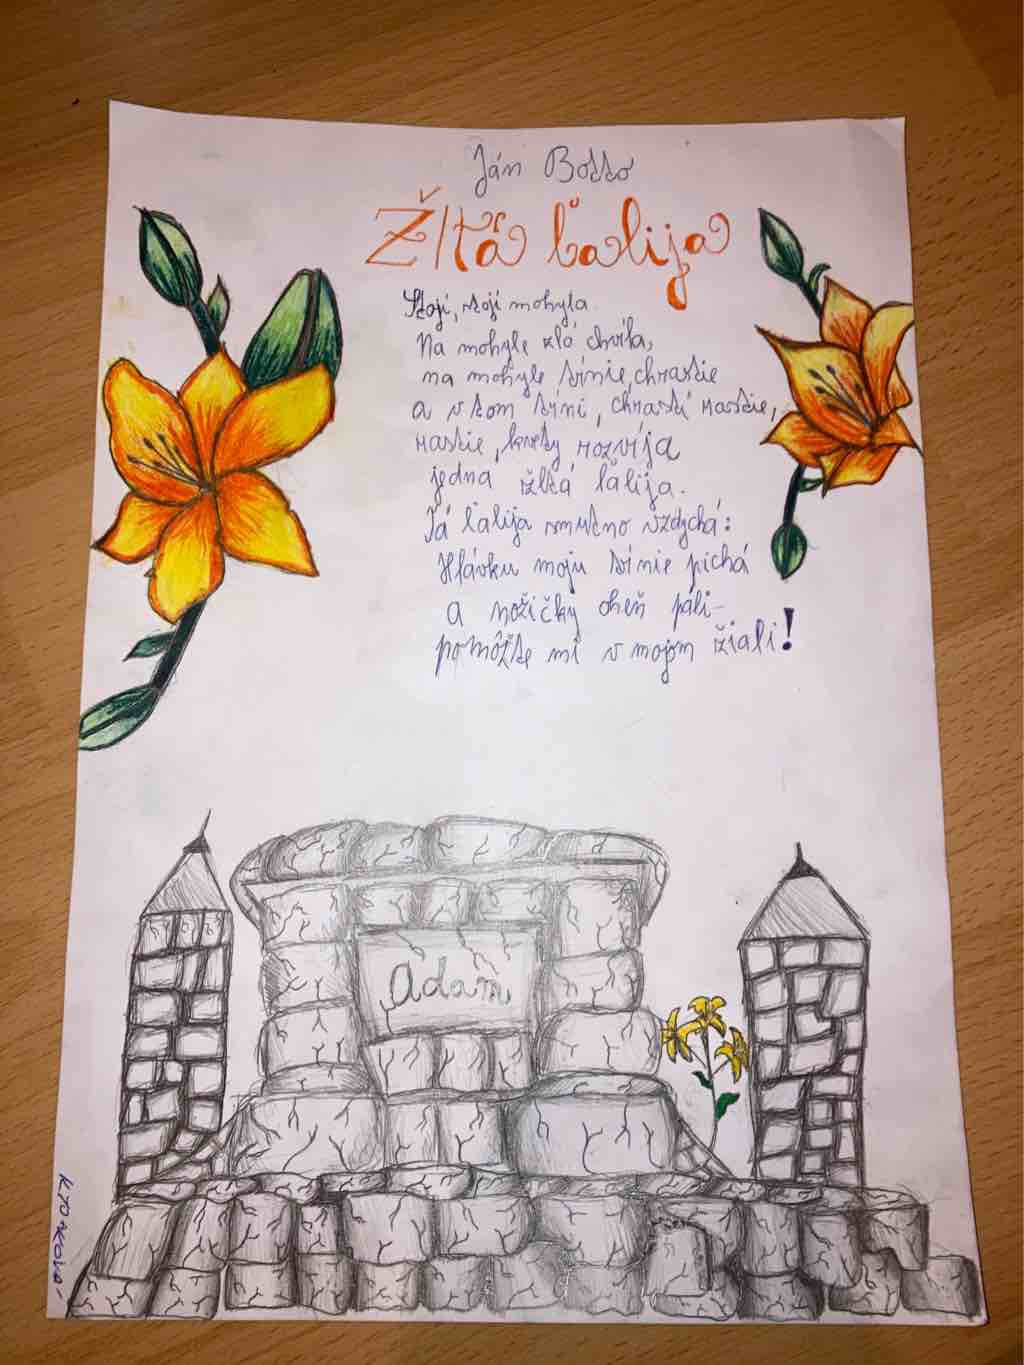 Ján Botto
Žltá ľalija
Stojí, stojí mohyla.
Na mohyle zlá chvíľa,
na mohyle tŕnie, chrastie
a v tom tŕní, chrastí rastie,
rastie, kvety rozvíja
jedna žltá ľalija.
Tá ľalija smutno vzdychá:
Hlávku moju tŕnie pichá
a nožičky oheň páli-
pomôžte mi v mojom žiali!
Adam